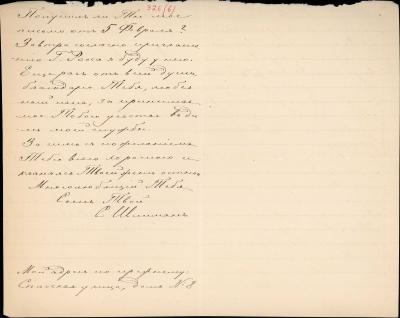 326(6)
Получилъ ли Ты мое
письмо отъ 5 Февраля?
Завтра согласно приглаше
нію Г. Росса я буду у него.
Еще разъ отъ всей души
благодарю Тебя, любез
ный папа, за принимае
мое Тобою участье въ дѣ
лѣ моей службы.
За симъ съ пожеланіемъ
Тебѣ всего хорошаго и
кланяясь Твоей женѣ остаюсь
Многолюбящій Тебя
Сынъ Твой
С Шлиманъ
Мой адресъ по прежнему:
Спасская улица, домъ № 8